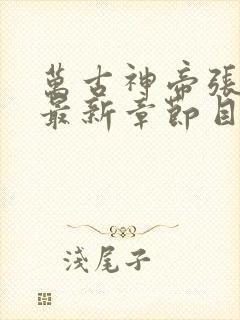 萬古神帝張
最新章節目
淺尾子